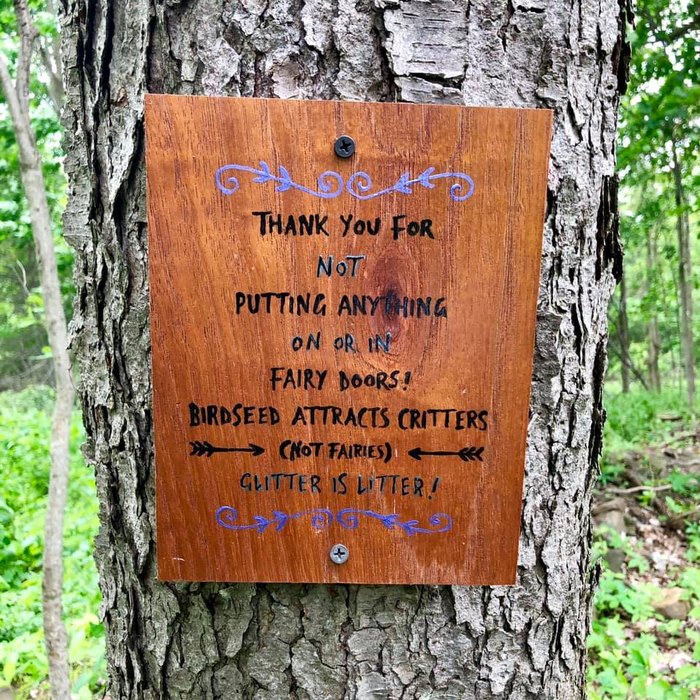 THANK YOU FOR
NOT
PUTTING ANYTHING
ON OR IN
FAIRY DOORS!
BIRDSEED ATTRACTS CRITTERS
(NOT FAIRIES)
GLITTER IS LITTER!